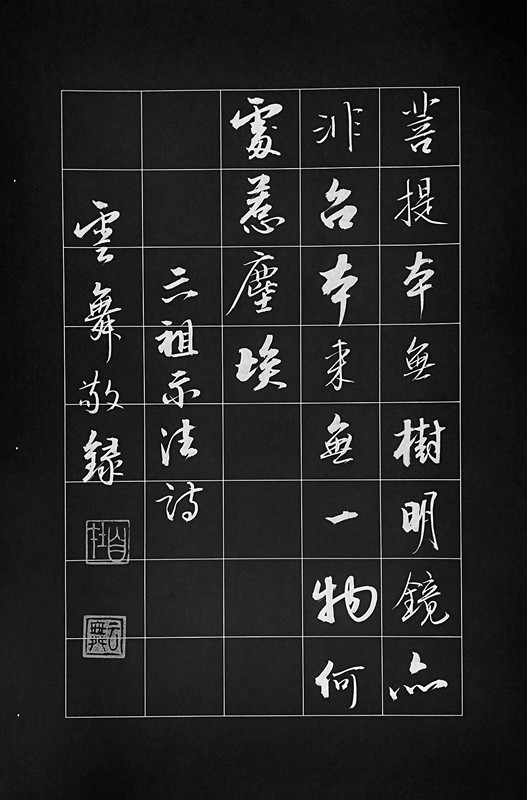 菩提本無樹明鏡亦
非台本来無一物何
處惹塵埃
六祖示法詩
雲舞敬録